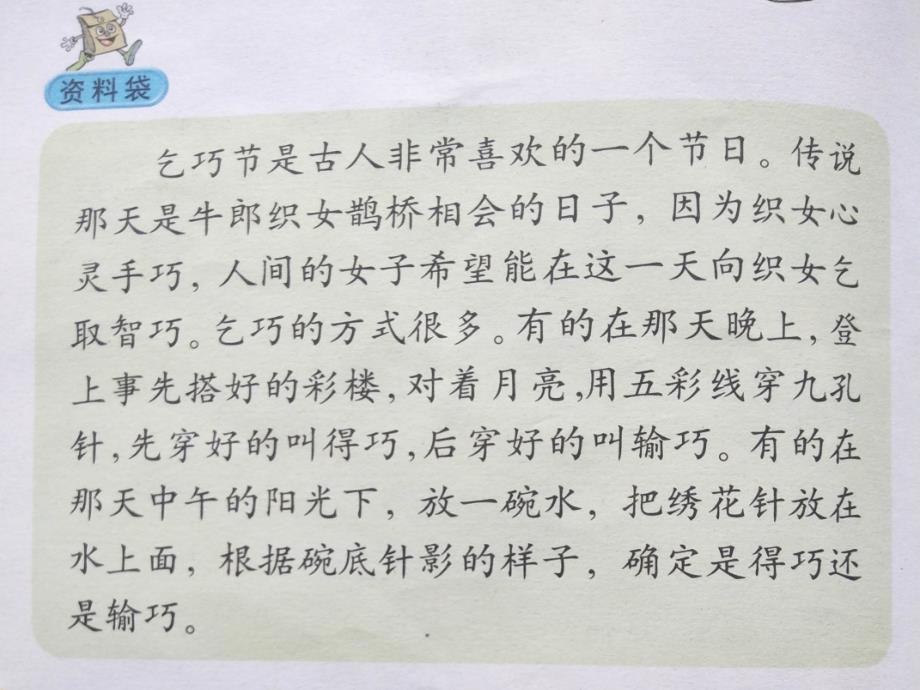 资料袋
乞巧节是古人非常喜欢的一个节日。传说
那天是牛郎织女鹊桥相会的日子，因为织女心
灵手巧，人间的女子希望能在这一天向织女乞
取智巧。乞巧的方式很多。有的在那天晚上，登
上事先搭好的彩楼，对着月亮，用五彩线穿九孔
针，先穿好的叫得巧，后穿好的叫输巧。有的在
那天中午的阳光下，放一碗水，把绣花针放在
水上面，根据碗底针影的样子，确定是得巧还
是输巧。